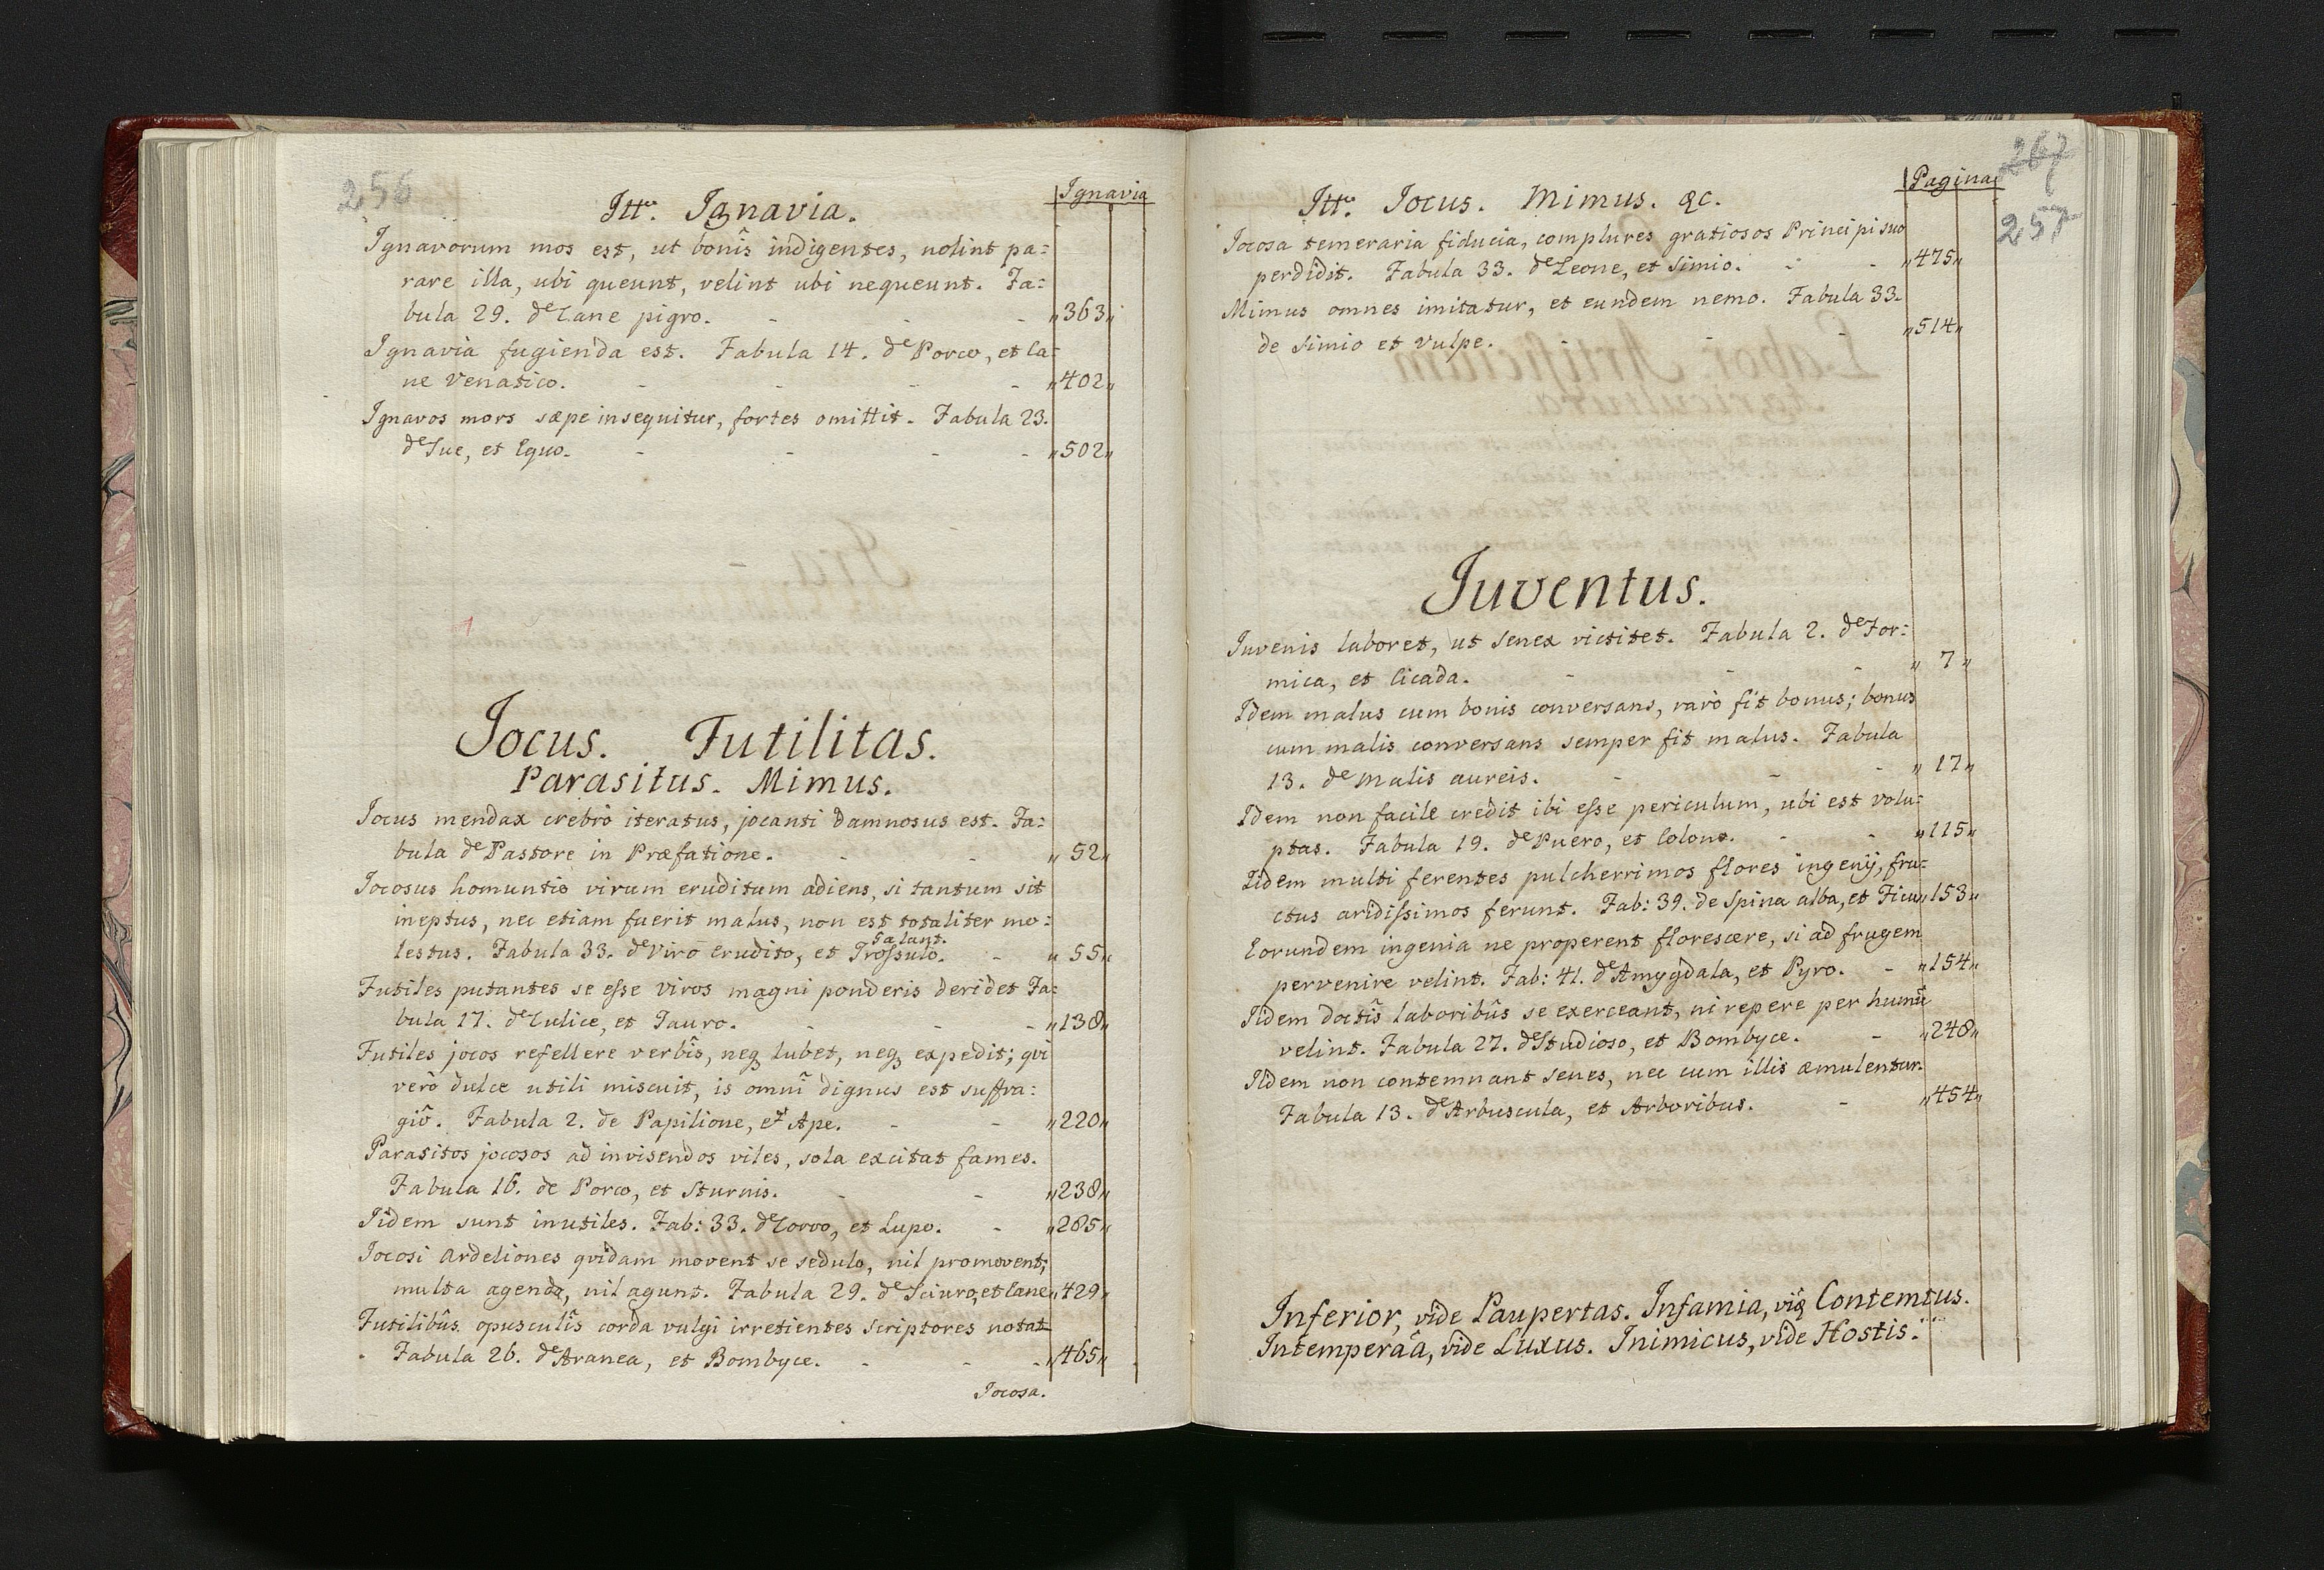 256
Ignavia
Ittō. Ignavia.
Ignavorum mos est, ut bonîs indigentes, nolint pa:
rare illa, ubi queunt, velint ubi nequeunt. Fa:
bula 29. de Cane pigro. - - - „363„
Ignavia fugienda est. Fabula 14. de Porco, et Ca:
ne Venatico. - - - - „402„
Ignavos mors sæpe insequitur, fortes omittit. Fabula 23.
de Sue, et Equo. - - - - „502„
Jocus. Futilitas.
Parasitus. Mimus.
Jocus mendax crebrò iteratus, jocanti damnosus est. Fa:
bula de Pastore in Præfatione. - - „52„
Jocosus homuntio virum eruditum adiens, si tantum sit
ineptus, nec etiam fuerit malus, non est totaliter mo:
Galant.
lestus. Fabula 33. de Viro Erudito, et Trossulo. - „55„
Futiles putantes se esse viros magni ponderis deridet Fa:
bula 17. de Culice, et Tauro. - - - „138„
Futiles jocos refellere verbîs, neq lubet, neq expedit; qvi
verò dulce utili miscuit, is omnî dignus est suffra:
giô. Fabula 2. de Papilione, et Ape. - - „220„
Parasitos jocosos ad invisendos viles, sola excitat fames.
Fabula 16. de Porco, et Sturnis. - - „238„
Iidem sunt inutiles. Fab: 33. de Corvo, et Lupo. - „285„
Jocosi Ardeliones qvidam movent se sedulo, nil promovent;
multa agendo, nil agunt. Fabula 29. de Sciuro, et Cane „429„
Futilibûs opusculîs corda vulgi irretientes scriptores notat
Fabula 26. de Aranea, et Bombyce. - - - „465„
Jocosa.
267
257
Pagina
Ittō. Jocus. Mimus. &c.
Jocosa temeraria fiducia, complures gratiosos Principi suo
perdidit. Fabula 33. de Leone, et Simio. - - „475„
Mimus omnes imitatur, et eundem nemo. Fabula 33.
de Simio et Vulpe. - - - „514„
Juventus.
Juvenis laboret, ut Senex victitet. Fabula 2. de For:
mica, et Cicada. - - - „7„
Idem malus cum bonis conversans, rarò fit bonus; bonus
cum malis conversans semper fit malus. Fabula
13. de Malis aureis. - - - „17„
Idem non facile credit ibi esse periculum, ubi est volu:
ptas. Fabula 19. de Puero, et Colono. - - „115„
Iidem multi ferentes pulcherrimos flores ingenij, fru:
ctus aridissimos ferunt. Fab: 39. de Spina alba, et Ficu „153„
Eorundem ingenia ne properent florescere, si ad frugem
pervenire velint. Fab: 41. de Amygdala, et Pyro. - „154„
Iidem doctîs laboribûs se exerceant, ni repere per humū
velint. Fabula 27. de Studioso, et Bombyce. - „248„
Iidem non contemnant senes, nec cum illis æmulentur.
Fabula 13. de Arbuscula, et Arboribus. - „454„
Inferior, vide Paupertas. Infamia, vid Contemtus.
Intemperāa, vide Luxus. Inimicus, vide Hostis.